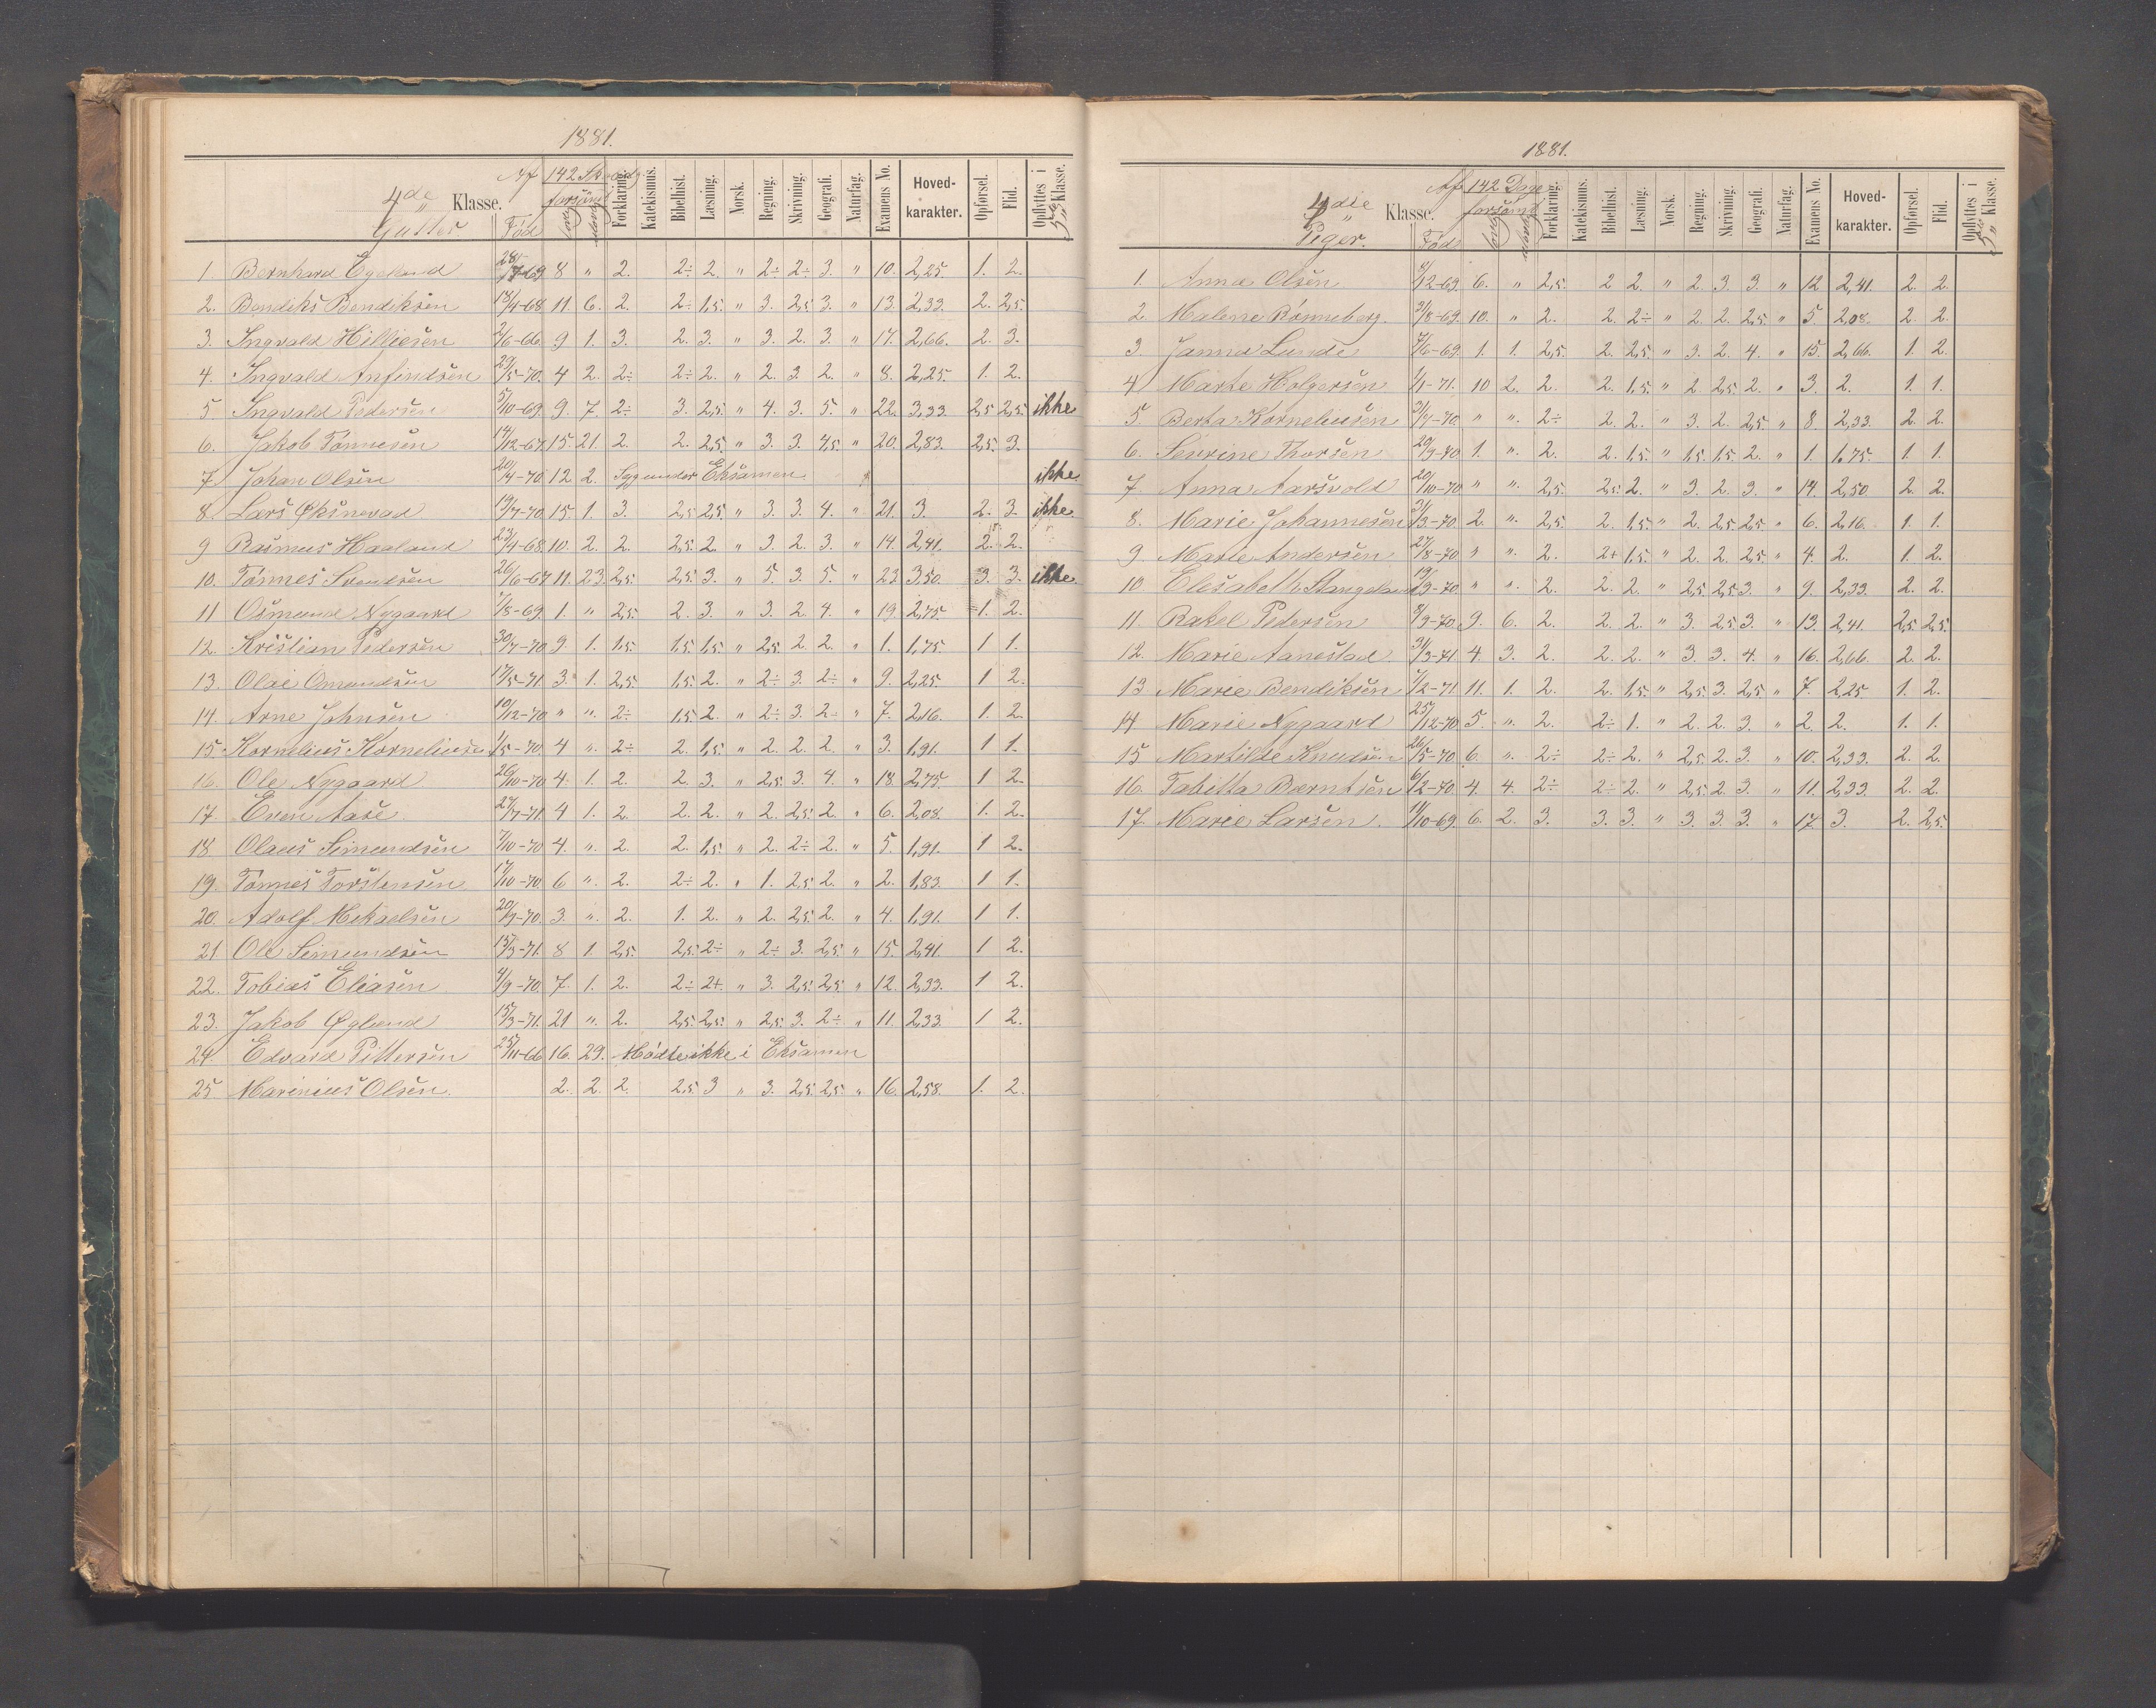 1881.
4de Klasse. Gutter. Født Af 142 forsømt Forklaring. Katekismus. Bibelhist. Læsning. Norsk. Regning. Skrivning. Geografi. Naturfag. Examens No. Hoved-karakter. Opførsel. Flid. Opflyttes i 5te Klasse.
1. Bernhard Egeland 28/7-69 8 " 2. 2÷ 2. " 2÷ 2÷ 3. " 10. 2,25. 1. 2.
2. Bendiks Bendiksen 14/4-68 11. 6. 2. 2÷ 1,5. " 3. 2,5 3. " 13. 2,33. 2. 2,5.
3. Ingvald Hilliesen 2/6-66 9 1. 3. 2. 3. " 3. 2. 3. " 17. 2,66. 2. 3.
4. Ingvald Anfindsen 29/5-70. 4 2. 2÷ 2÷ 2. " 2. 3. 2. " 8. 2,25. 1. 2.
5. Ingvald Pedersen 5/10-69. 9. 7. 2÷ 3. 2,5. " 4. 3. 5. " 22. 3,33. 2,5 2,5. ikke
6. Jakob Tønnesen 14/12-67. 15. 21. 2. 2. 2,5. " 3. 3. 4,5. " 20. 2,83. 2,5. 3.
7 Johan Olsen 20/4-70 12 2. Syg under Eksamen ikke
8. Lars Øksnevad 19/7-70. 15. 1. 3. 2,5 2,5. " 3. 3. 4. " 21. 3. 2. 3. ikke.
9 Rasmus Haaland 23/4-68. 10. 2. 2. 2,5. 2. " 3. 2. 3. " 14. 2,41. 2. 2.
10. Tønnes Svendsen 26/6-67 11. 23. 2,5. 2,5. 3. " 5. 3. 5. " 23. 3,50. 3. 3. ikke.
11 Osmund Nygaard 1/8-69. 1. " 2,5. 2. 3. " 3. 2. 4. " 19. 2,75. 1. 2.
12. Kristian Pedersen 30/7-70 9. 1. 1,5. 1,5. 1,5. " 2,5. 2. 2. " 1. 1,75. 1 1.
13. Olai Omundsen 17/5-71. 3. 1. 2,5. 1,5. 2. " 2÷ 3. 2÷ " 9. 2,25. 1 2.
14. Arne Johnsen 10/12-70 " " 2÷ 1,5 2. " 2÷ 3. 2. " 7. 2,16. 1. 2.
15. Kornelius Korneliusen 1/5-70. 4 " 2÷ 2. 1,5. " 2. 2. 2. " 3. 1,91. 1 1.
16. Ole Nygaard 26/10-70 4. 1. 2. 2. 3. " 2,5. 3. 4. " 18. 2,75. 1 2.
17. Even Aase 27/7-71. 4 1. 2. 2. 2. " 2. 2,5. 2. " 6. 2,08. 1. 2.
18 Olaus Simundsen 7/10-70 4. " 2. 2. 1,5. " 2. 2÷ 2. " 5. 1,91. 1 2.
19. Tønnes Torstensen 17/10-70 6 " 2. 2÷ 2. " 1. 2,5 2. " 2. 1,83. 1 1.
20. Adolf Mikaelsen 20/7-70. 3. " 2. 1. 2. " 2. 2,5 2. " 4. 1,91. 1 1.
21 Ole Simundsen 15/3-71. 8 1. 2,5. 2,5. 2÷ " 2÷ 3. 2,5. " 15. 2,41. 1 2.
22. Tobias Eliasen 4/9-70 7. 1. 2. 2÷ 2+. " 3. 2,5. 2,5. " 12. 2,33. 1 2.
23. Jakob Øglend 15/3-71. 21 " 2. 2,5. 2,5. " 2,5. 3. 2÷ " 11. 2,33. 1 2.
24. Edvard Pittersen 25/11-66 16. 29. Mødte ikke i Eksamen
25 Marinius Olsen. 2. 2. 2. 2,5. 3 " 3. 2,5. 2,5. " 16. 2,58. 1. 2.
1881.
4die Klasse. Piger. Født Af 142 Dage forsømt Forklaring. Katekismus. Bibelhist. Læsning. Norsk. Regning. Skrivning. Geografi. Naturfag. Examens No. Hoved-karakter. Opførsel. Flid. Opflyttes i 5te Klasse.
1. Anna Olsen /12-69. 6. " 2,5. 2 2. " 2. 3. 3. " 12 2,41. 2. 2.
2. Malene Rønneberg. 31/8-69. 10. " 2. 2. 2÷ " 2. 2. 2,5. " 5. 2,08. 2. 2.
3. Janna Lunde 7/6-69. 1. 1. 2,5. 2. 2,5. " 3. 2. 4. " 15. 2,66. 1. 2.
4 Marte Holgersen 1/1-71. 10 2. 2. 2. 1,5. " 2. 2,5 2. " 3. 2. 1. 1.
5. Berta Korneliusen 31/7-70. " " 2÷ 2. 2. " 3. 2. 2,5. " 8. 2,33. 2. 2.
6. Sevrine Thorsen 29/9-70 1. " 2. 2. 1,5. " 1,5. 1,5. 2. " 1. 1,75. 1 1.
7. Anna Aarsvold 20/10-70 " " 2,5. 2,5. 2. " 3. 2. 3. " 14. 2,50. 2. 2.
8. Marie Johannesen 31/3-70. 2. " 2,5. 2. 1,5. " 2. 2,5. 2,5. " 6. 2,16. 1. 1.
9 Marie Andersen 27/8-70 " " 2. 2+ 1,5. " 2. 2. 2,5. " 4. 2. 1. 2.
10 Elesabeth Stangeland 19/9-70 " " 2. 2. 2. " 2,5 2,5 3. " 9. 2,33. 2. 2.
11. Rakel Pedersen 8/9-70. 9. 6. 2. 2. 2. " 3. 2,5 3. " 13. 2,41. 2,5. 2,5.
12. Marie Aanestad 31/3-71 4. 3. 2. 2. 2. " 3. 3. 4. " 16. 2,66. 2. 2.
13 Marie Bendiksen 7/2-71. 11. 1. 2. 2. 1,5. " 2,5. 3. 2,5. " 7. 2,25 1. 2.
14 Marie Nygaard 25/12-70. 5. " 2. 2÷ 1. " 2. 2. 3. " 2. 2. 1. 1.
15 Martilde Knudsen 26/5-70 6. " 2÷ 2÷ 2. " 2,5. 2. 3. " 10. 2,33. 2. 2.
16. Tabitta Bærntsen 6/12-70. 4. 4. 2÷ 2÷ 2. " 2,5. 2. 3. " 11. 2,33. 2. 2.
17. Marie Larsen. 14/10-69. 6. 2. 3. 3. 3. " 3. 3. 3. " 17. 3. 2. 2,5.